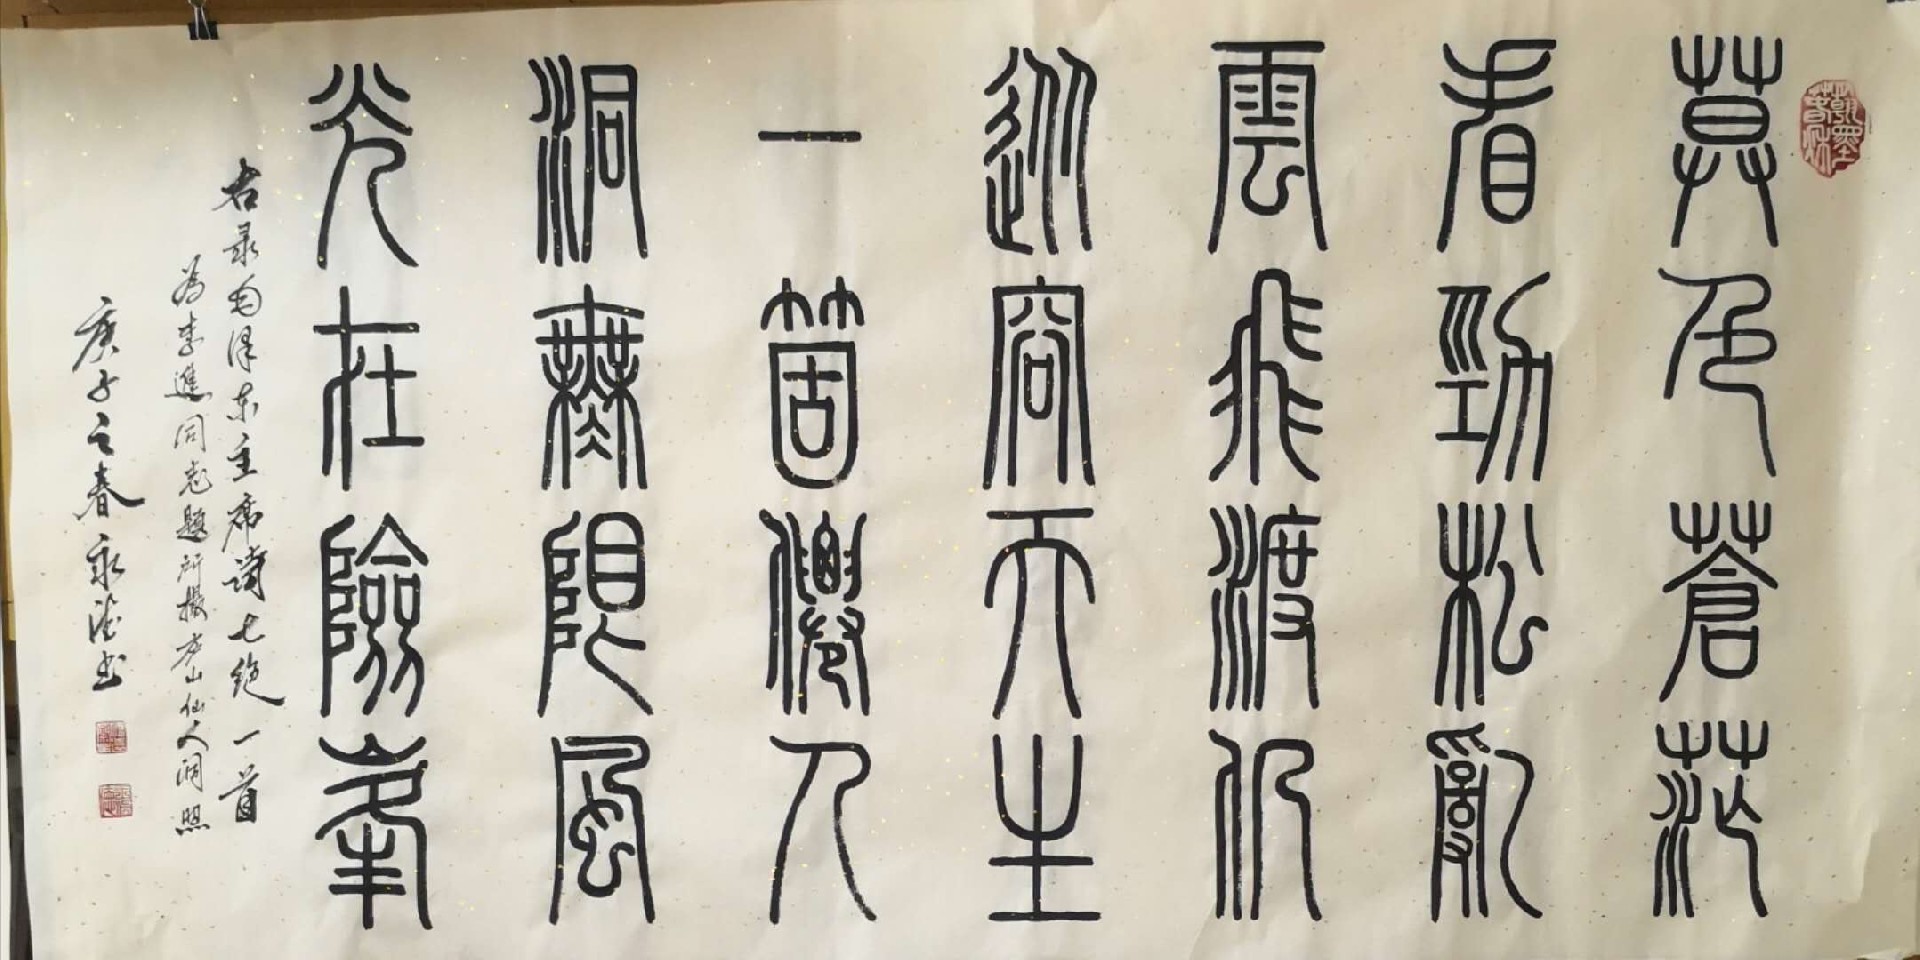 莫色蒼茫
看勁松亂
雲飛渡仍
從容天生
一箇僊人
洞無限風
光在險峯
右录毛泽东主席诗七绝一首
为李進同志题所摄庐山仙人洞照
庚子之春永法书